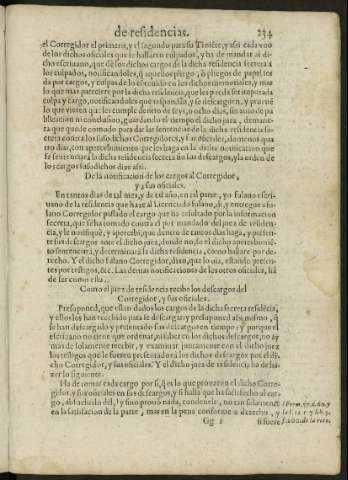 de residencias. 234
el Corregidor el primero, y el segundo para su Tiniẽte, y assi cada vno
de los dichos oficiales que se hallaren culpados, y ha de mandar al di-
cho escriuano, que de los dichos cargos de la dicha residencia secreta a
los culpados, notificandoles, q̃ aquellos pliego, ò pliegos de papel se
da por cargos, y culpa de lo contenido en los dichos memoriales, y mas
lo que mas pareciere por la dicha residencia, que les pueda ser imputada
culpa y cargo, notificandoles que respondan, y se descarguen, y prueuẽ
lo que vieren que les cumple dentro de seys, o ocho dias, sin auto de pu
blicacion ni conclusion, guardando el termino el dicho juez, demane-
ra que quede comodo para dar las sentencias de la dicha residencia se-
creta contra los susodichos Corregidores, y sus oficiales, alo menos qua
tro dias, con apercebimiento que les haga en la dicha notificacion que
se sentenciará la dicha residencia secreta sin los descargos, y la orden de
los cargos susodichos dize assi.
De la notificacion de los cargos al Corregidor,
y, sus oficiales.
En tantos dias de tal mes, y de tal año, en tal parte, yo fulano escri-
uano de la residencia que haze al Licenciado fulano, di, y entregue a fu-
lano Corregidor passado el cargo que ha resultado por la informacion
secreta, que se ha tomado contra el por mandado del juez de residen-
cia, y le notifiquè, y apercebi, que dentro de tantos dias haga, y presen-
te sus descargos ante el dicho juez, donde no, se el dicho apercebimiẽ-
to sentenciará, y determinará la dicha residencia, como hallare por de-
recho. Y el dicho fulano Corregidor, dixo, que lo oia, estando presen-
tes por testigos, &c. Las demas notificaciones de los otros oficiales, há
de ser como esta.
Como el juez de residencia recibe los descargos del
Corregidor, y sus oficiales.
Presuponed, que estan dados los cargos de la dicha secreta residẽcia,
y ellos los han recebido para se descargar y presuponed assi mesmo, q̃
se han descargado y presentado sus descargos en tiempo y porque el
escriuano no tiene que ordenar, ni hazer en los dichos descargos, no ay
mas de solamente recebir, y examinar juntamente con el dicho juez
los testigos que le fueren presentados a los dichos descargos por el di-
cho Corregidor, y sus oficiales. Y el dicho juez de residencia, ha de ha-
zer lo siguiente.
Ha de tomar cada cargo por si, q̃ es lo que prouaron el dicho Corre-
gidor, y sus oficiales en sus descargos, y si halla que ha satisfecho al car-
go, absoluerlo del, y sino prouó nada, condenarle, no tan solamente
en la satisfacion de la parte, mas en la pena conforme a derecho, y
Gg 2 si fuere